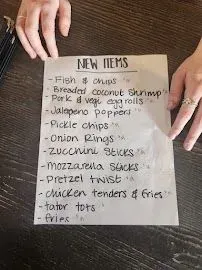 NEW ITEMS
- Fish & chips
- Breaded coconut shrimp
- Pork & vegi eggrolls
- Jalapeno poppers
- Pickle chips
- Onion Rings
- Zucchini sticks
- Mozzarella sticks
- Pretzel twist
- chicken tenders & fries
- tator tots
- fries